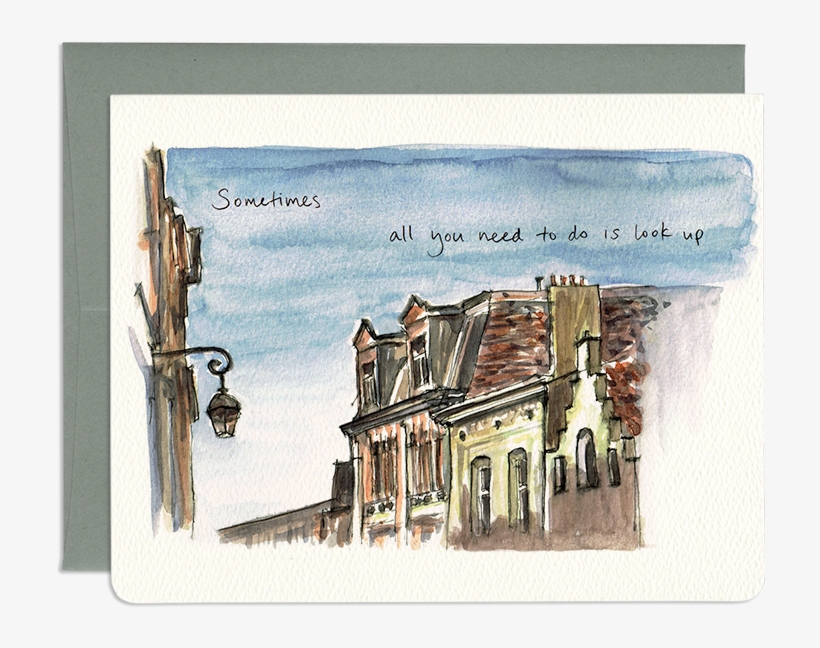 Sometimes
all you need to do is look up